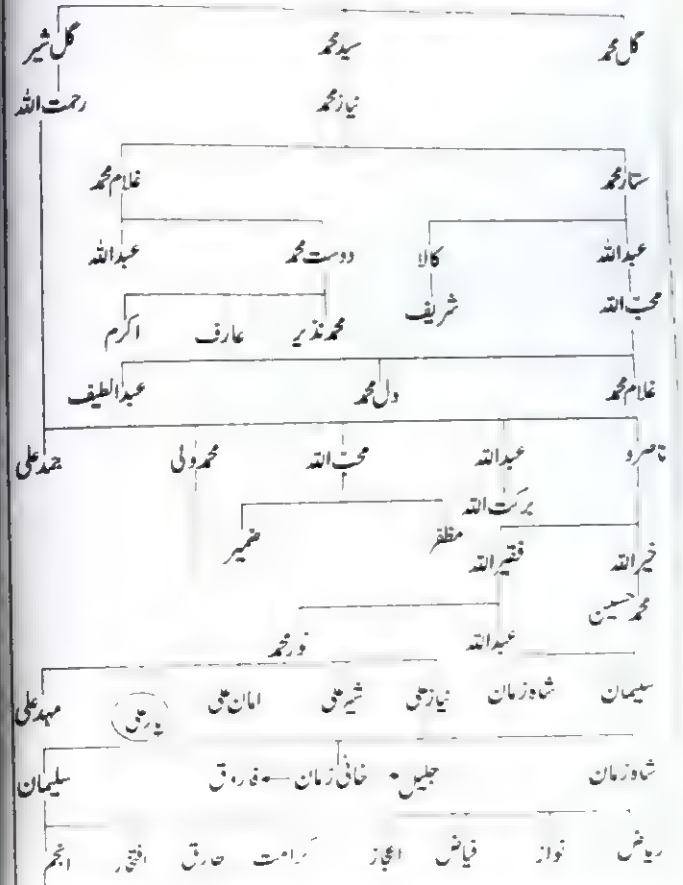 گل محمد سید محمد گل شیر
نیاز محمد رحمت اللہ
ستار محمد غلام محمد
عبداللہ کالا دوست محمد عبداللہ
محب اللہ شریف محمد نذیر عارف اکرم
غلام محمد دل محمد عبدالطیف
ناصرو عبداللہ محب اللہ محمد ولی جمد علی
برکت اللہ
مظفر ضمیر
خیر اللہ فقیر اللہ
محمد حسین
عبداللہ نور محمد
سلیمان شاہ زمان نیاز علی شیر علی امان علی مہمد علی
شاہ زمان جلیل خانی زمان فاروق سلیمان
ریاض نواز فیاض اعجاز کرامت طارق افتخار انجم